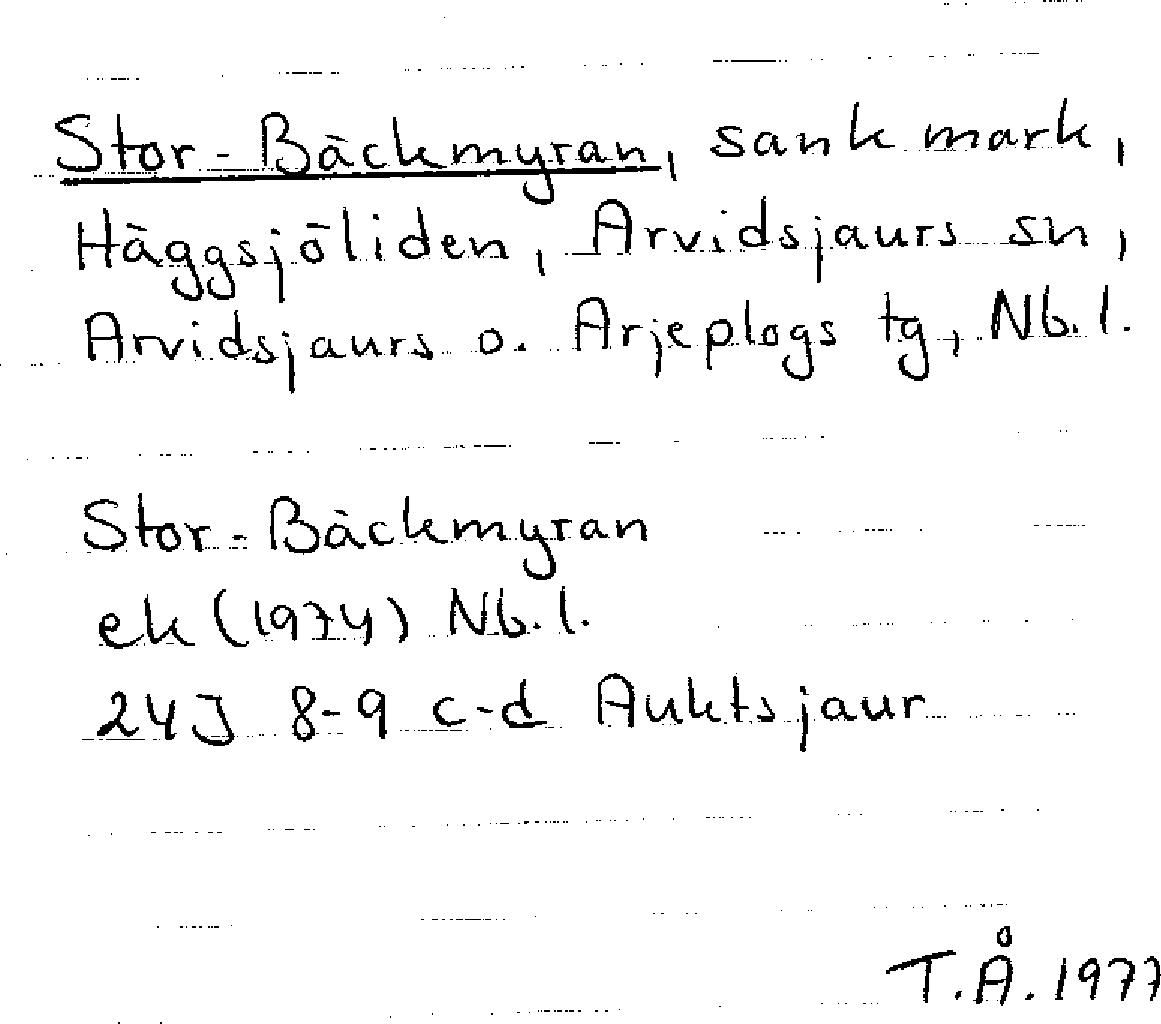 Stor-Bäckmyran, sank mark,
Häggsjöliden, Arvidsjaurs sn,
Arvidsjaurs o. Arjeplogs tg, Nb. l.
Stor-Bäckmyran
ek (1974) Nb. l.
24J 8-9 c-d Auktsjaur
T.Å. 1977